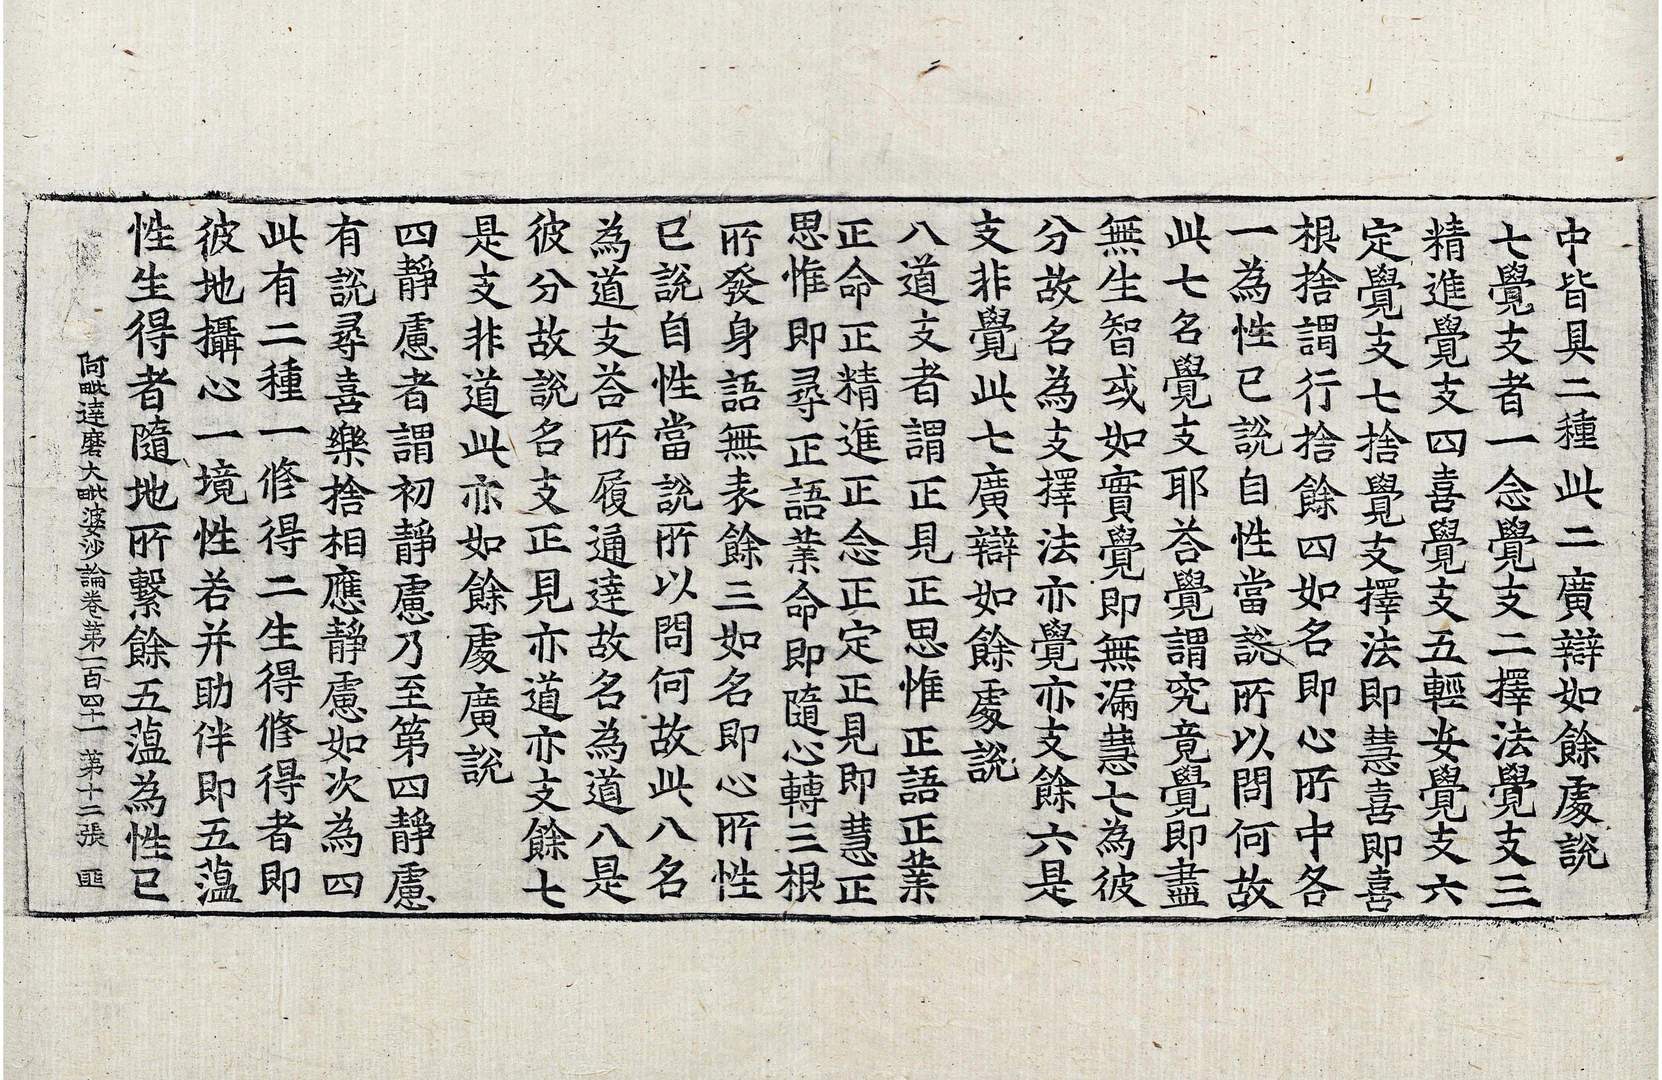 中皆具二種此二廣辯如餘處說
七覺支者一念覺支二擇法覺支三
精進覺支四喜覺支五輕安覺支六
定覺支七捨覺支擇法即慧喜即喜
根捨謂行捨餘四如名即心所中各
一為性已說自性當說所以問何故
此七名覺支耶荅覺謂究竟覺即盡
無生智或如實覺即無漏慧七為彼
分故名為支擇法亦覺亦支餘六是
支非覺此七廣辯如餘處說
八道支者謂正見正思惟正語正業
正命正精進正念正定正見即慧正
思惟即尋正語業命即隨心轉三根
所發身語無表餘三如名即心所性
已說自性當說所以問何故此八名
為道支荅所履通達故名為道八是
彼分故說名支正見亦道亦支餘七
是支非道此亦如餘處廣說
四靜慮者謂初靜慮乃至第四靜慮
有說尋喜樂捨相應靜慮如次為四
此有二種一修得二生得修得者即
彼地攝心一境性若并助伴即五蘊
性生得者隨地所繫餘五蘊為性已
阿毗達磨大毗婆沙論卷第一百四十一 第十二張 匪